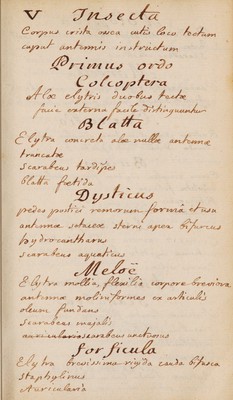 V Insecta
Corpus crista ossea cutis loco tectum
caput antennis instructum
Primus ordo
Coleoptera
Alæ elytris duobus tectæ
facie externa facile distinguuntur
Blatta
Elytra concreta alæ nullæ antennæ
truncatæ
scarabeus tardipes
blatta fœtida
Dysticus
pedes postici remorum forma et usu
antennæ setaceæ sterni apex bifurcus
hydrocantharus
scarabeus aquaticus
Meloë
Elytra mollia, flexilia corpore breviora
antennæ moliniformes ex articulis
oleum fundans
scarabeus majalis
scarabeus unctuosus
forficula
Elytra brevissima rigida cauda bifurca
staphylinus
Auricularia